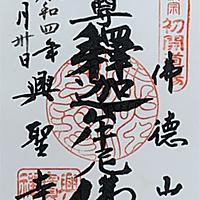 宗
初開道場
佛德山
尊釋迦牟尼佛
興聖寺
和四年
月卅日